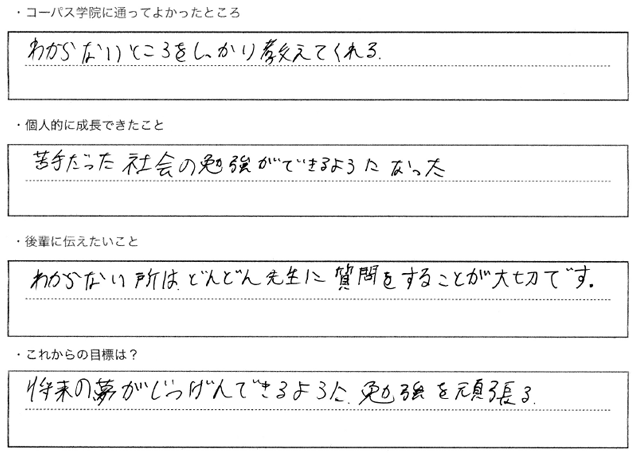 ・コーパス学院に通ってよかったところ
わからないところをしっかり教えてくれる.
・個人的に成長できたこと
苦手だった社会の勉強ができるようになった
・後輩に伝えたいこと
わからない所は、どんどん先生に質問をすることが大切です.
・これからの目標は？
将来の夢がじつげんできるように、勉強を頑張る.